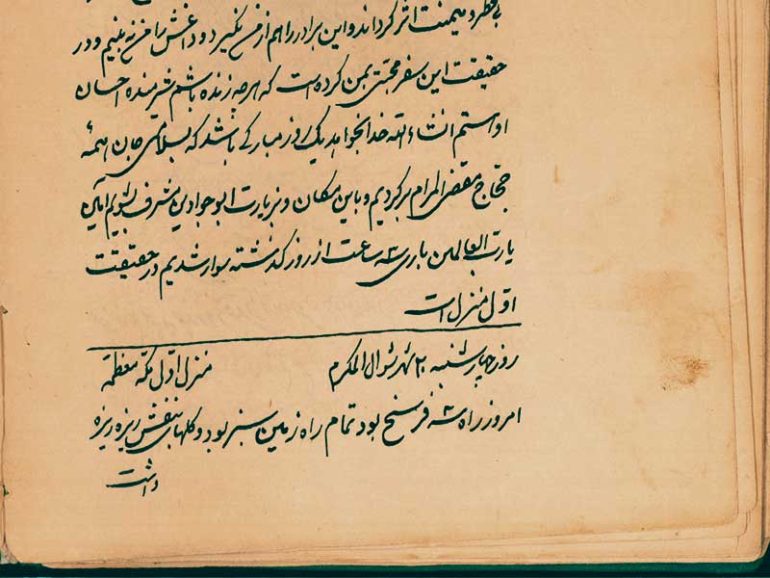 بی‌خطر و میمنت اثر گرداند و این برادر را هم از من نگیرد و داغش را من نبینم و در
حقیقت این سفر محبتی بمن کرده است که هر چه زنده باشم شرمنده احسان
او هستم انشاءالله خدا بخواهد یک روز مبارکی باشد که بسلامتی جان همهٔ
حجاج مقضی المرام برگردیم و باین مکان و بزیارت ابو جوادین مشرف بشویم آمین
یا رب العالمین باری ۳ ساعت از روز گذشته سوار شدیم در حقیقت
اوّل منزل است
روز چهارشنبه ۲۰ شهر شوال المکرم منزل اوّل مکه معظمه
امروز راه ۳ فرسخ بود تمام راه زمین سبز بود و گلهای بنفش ریزه ریزه
داشت